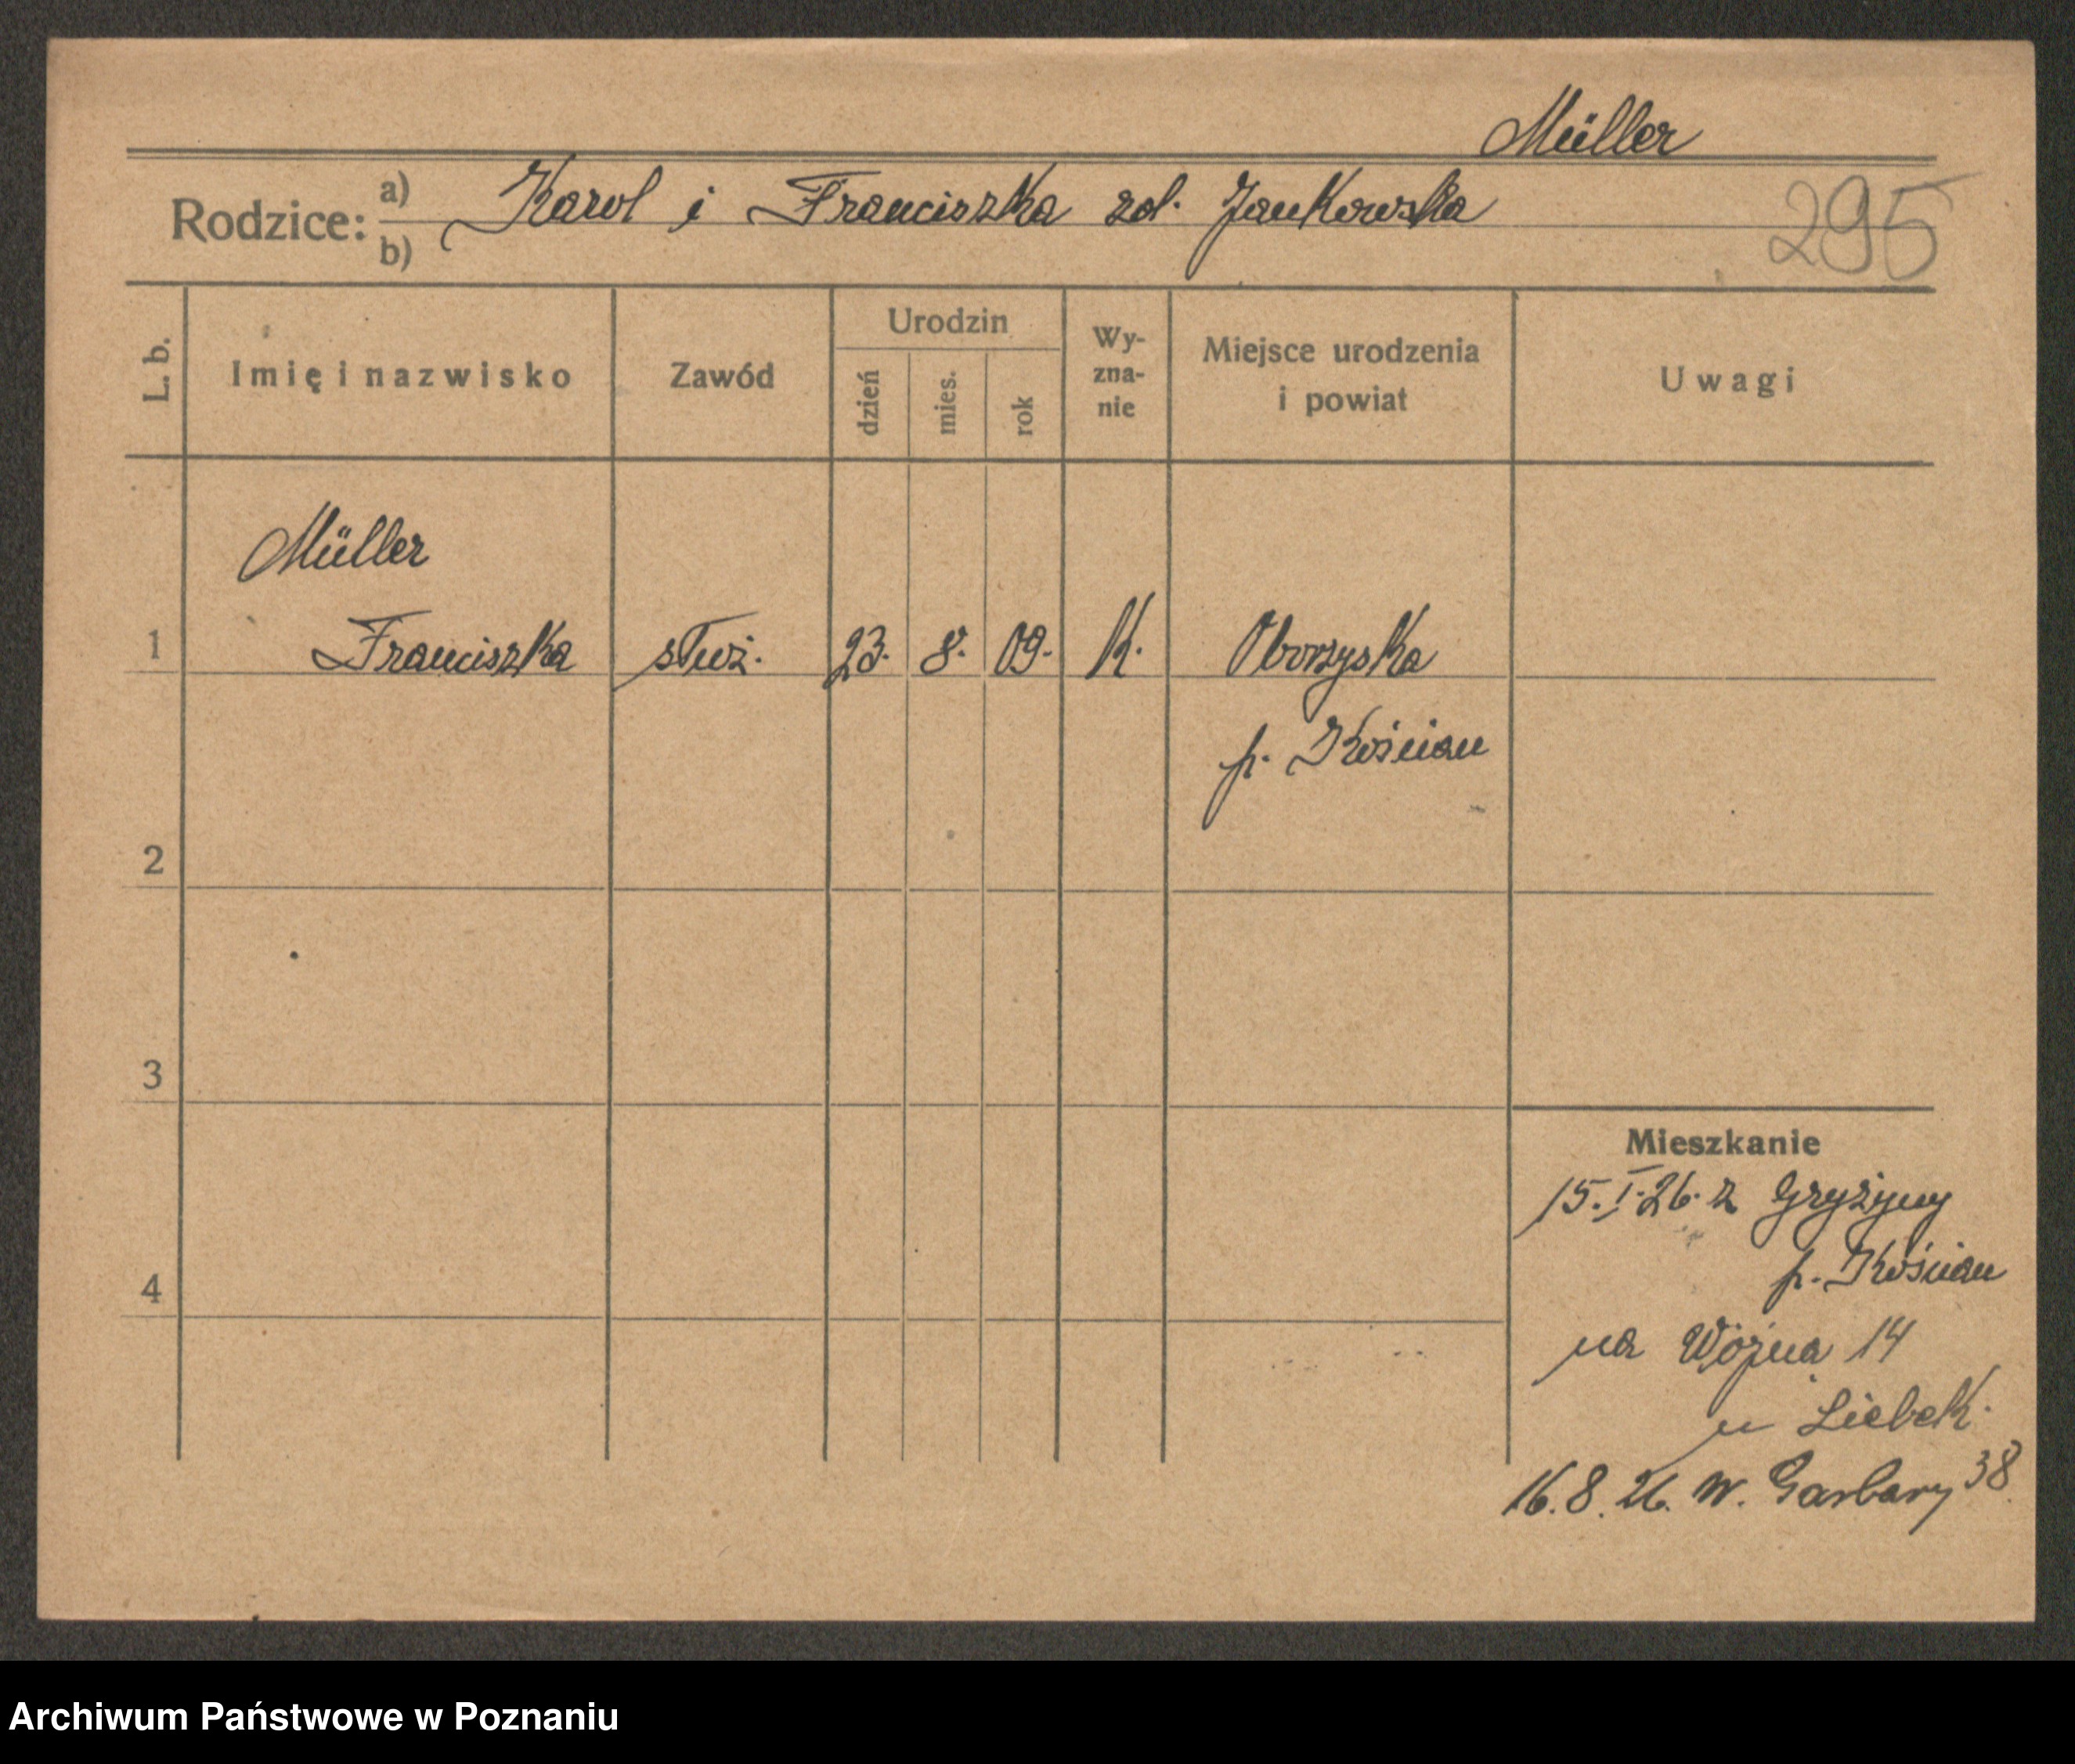 Müller
Rodzice: a) Karol i Franciszka zd. Jankowska
b)
295
L. b.
Imię i nazwisko
Zawód
Urodzin
dzień
mies.
rok
Wy-
zna-
nie
Miejsce urodzenia
i powiat
Uwagi
Müller
1 Franciszka służ. 23. 8. 09. K. Oborzyska
p. Kościan
2
3
Mieszkanie
15. I. 26. z Gryżyny
p. Kościan
4
na Woźna 14
u Liebek.
16. 8. 26. W. Garbary 38.
Archiwum Państwowe w Poznaniu